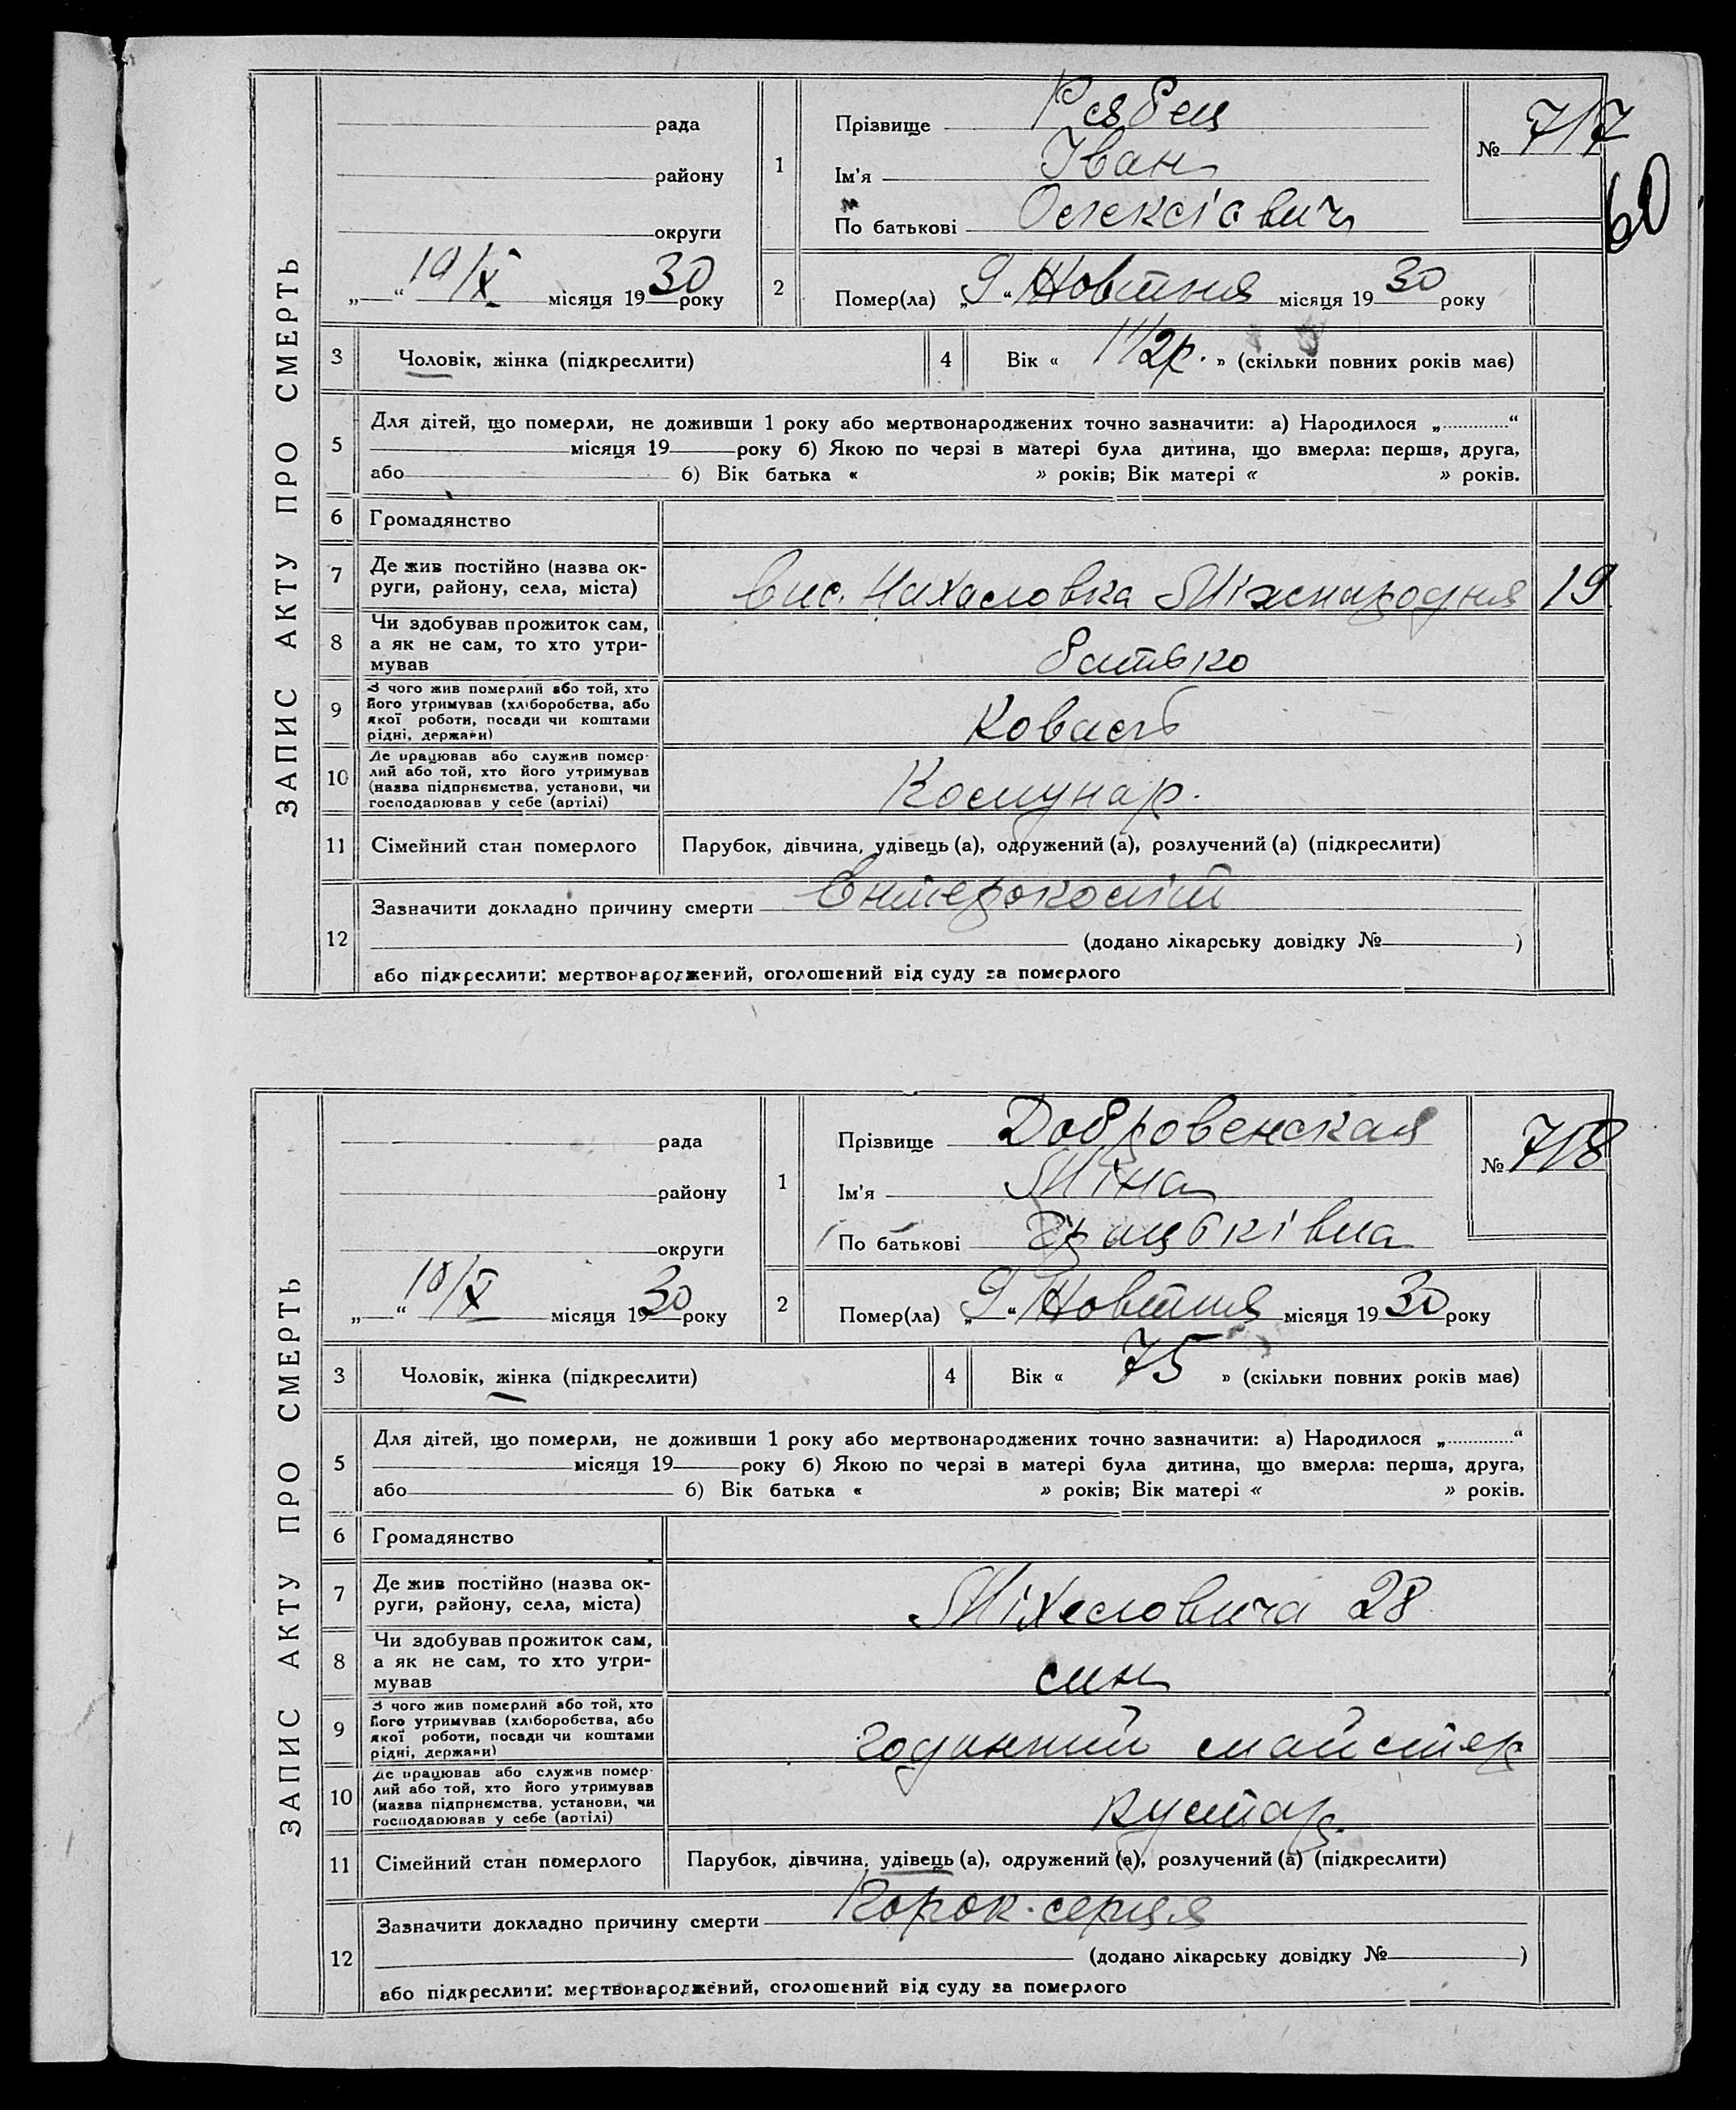 60
ЗАПИС АКТУ ПРО СМЕРТЬ
рада
району
округи
„ “ 10/X місяця 1930 року
1
Прізвище Рябец
Ім'я Іван
По батькові Олексієвич
№ 717
2
Помер(ла) „9“ Жовтня місяця 1930 року
3
Чоловік, жінка (підкреслити)
4
Вік « 1 1/2 р. » (скільки повних років має)
5
Для дітей, що померли, не доживши 1 року або мертвонароджених точно зазначити: а) Народилося „ “
місяця 19 року б) Якою по черзі в матері була дитина, що вмерла: перша, друга,
або б) Вік батька « » років; Вік матері « » років.
6
Громадянство
7
Де жив постійно (назва ок-
руги, району, села, міста)
вис. Нахаловка Міжнародня 19
8
Чи здобував прожиток сам,
а як не сам, то хто утри-
мував
батько
9
З чого жив померлий або той, хто
його утримував (хліборобства, або
якої роботи, посади чи коштами
рідні, держави)
Коваль
10
Де працював або служив помер-
лий або той, хто його утримував
(назва підпрнємства, установи, чи
господарював у себе (артілі)
Комунар.
11
Сімейний стан померлого
Парубок, дівчина, удівець (а), одружений (а), розлучений (а) (підкреслити)
12
Зазначити докладно причину смерти Ентероколіт
(додано лікарську довідку № )
або підкреслити: мертвонароджений, оголошений від суду за померлого
ЗАПИС АКТУ ПРО СМЕРТЬ
рада
району
округи
„ “ 10/X місяця 1930 року
1
Прізвище Добровенская
Ім'я Міна
По батькові
№ 718
2
Помер(ла) „9“ Жовтня місяця 1930 року
3
Чоловік, жінка (підкреслити)
4
Вік « 75 » (скільки повних років має)
5
Для дітей, що померли, не доживши 1 року або мертвонароджених точно зазначити: а) Народилося „ “
місяця 19 року б) Якою по черзі в матері була дитина, що вмерла: перша, друга,
або б) Вік батька « » років; Вік матері « » років.
6
Громадянство
7
Де жив постійно (назва ок-
руги, району, села, міста)
Міхеловича 28
8
Чи здобував прожиток сам,
а як не сам, то хто утри-
мував
син
9
З чого жив померлий або той, хто
його утримував (хліборобства, або
якої роботи, посади чи коштами
рідні, держави)
майстер
10
Де працював або служив помер-
лий або той, хто його утримував
(назва підпрнємства, установи, чи
господарював у себе (артілі)
кустар.
11
Сімейний стан померлого
Парубок, дівчина, удівець (а), одружений (а), розлучений (а) (підкреслити)
12
Зазначити докладно причину смерти Порок. серця
(додано лікарську довідку № )
або підкреслити: мертвонароджений, оголошений від суду за померлого